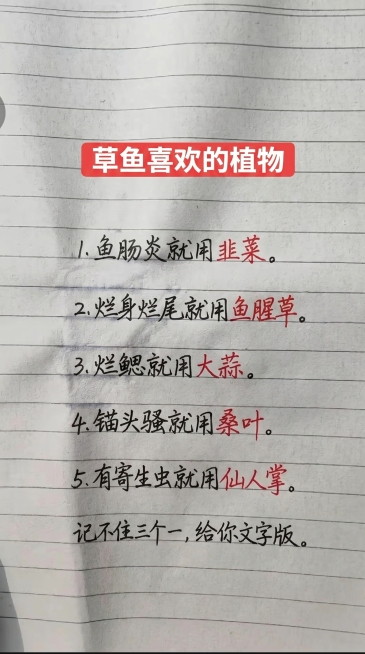 草鱼喜欢的植物
1.鱼肠炎就用韭菜。
2.烂身烂尾就用鱼腥草。
3.烂鳃就用大蒜。
4.锚头骚就用桑叶。
5.有寄生虫就用仙人掌。
记不住三个一,给你文字版。